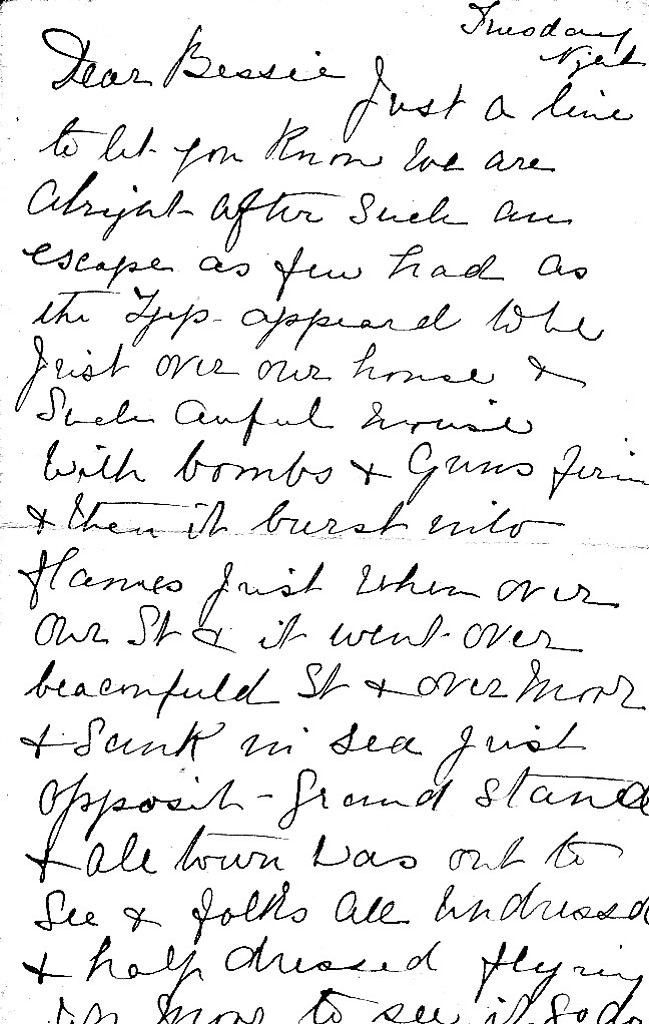 Tuesday
Night
Dear Bessie Just a line
to let you know We are
Alright after Such an
escape as few had as
the Zepp appeared to be
Just over our house &
Such awful noise
With bombs & Guns firin
& then it burst into
flames Just when over
Our St & it went over
beaconfield St & over Moor
& Sank in sea Just
opposit Grand Stand
& all town was out to
See & folks all Undressed
& half dressed flying
on Moor to see it